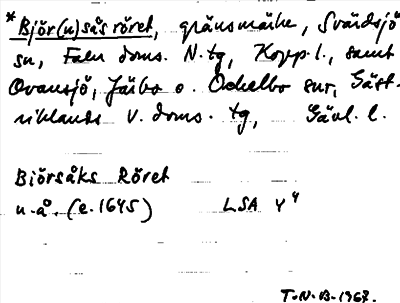 *Björ(n)såsröret, gränsmärke, Svärdsjö
sn, Falu doms. N. tg, Kopp. l., samt
Ovansjö, Järbo o. Ockelbo snr, Gäst-
riklands V. doms. tg, Gävl. l.
Biörsåks Röret
u.å. (e. 1645) LSA Y4
T.N.B. 1967.